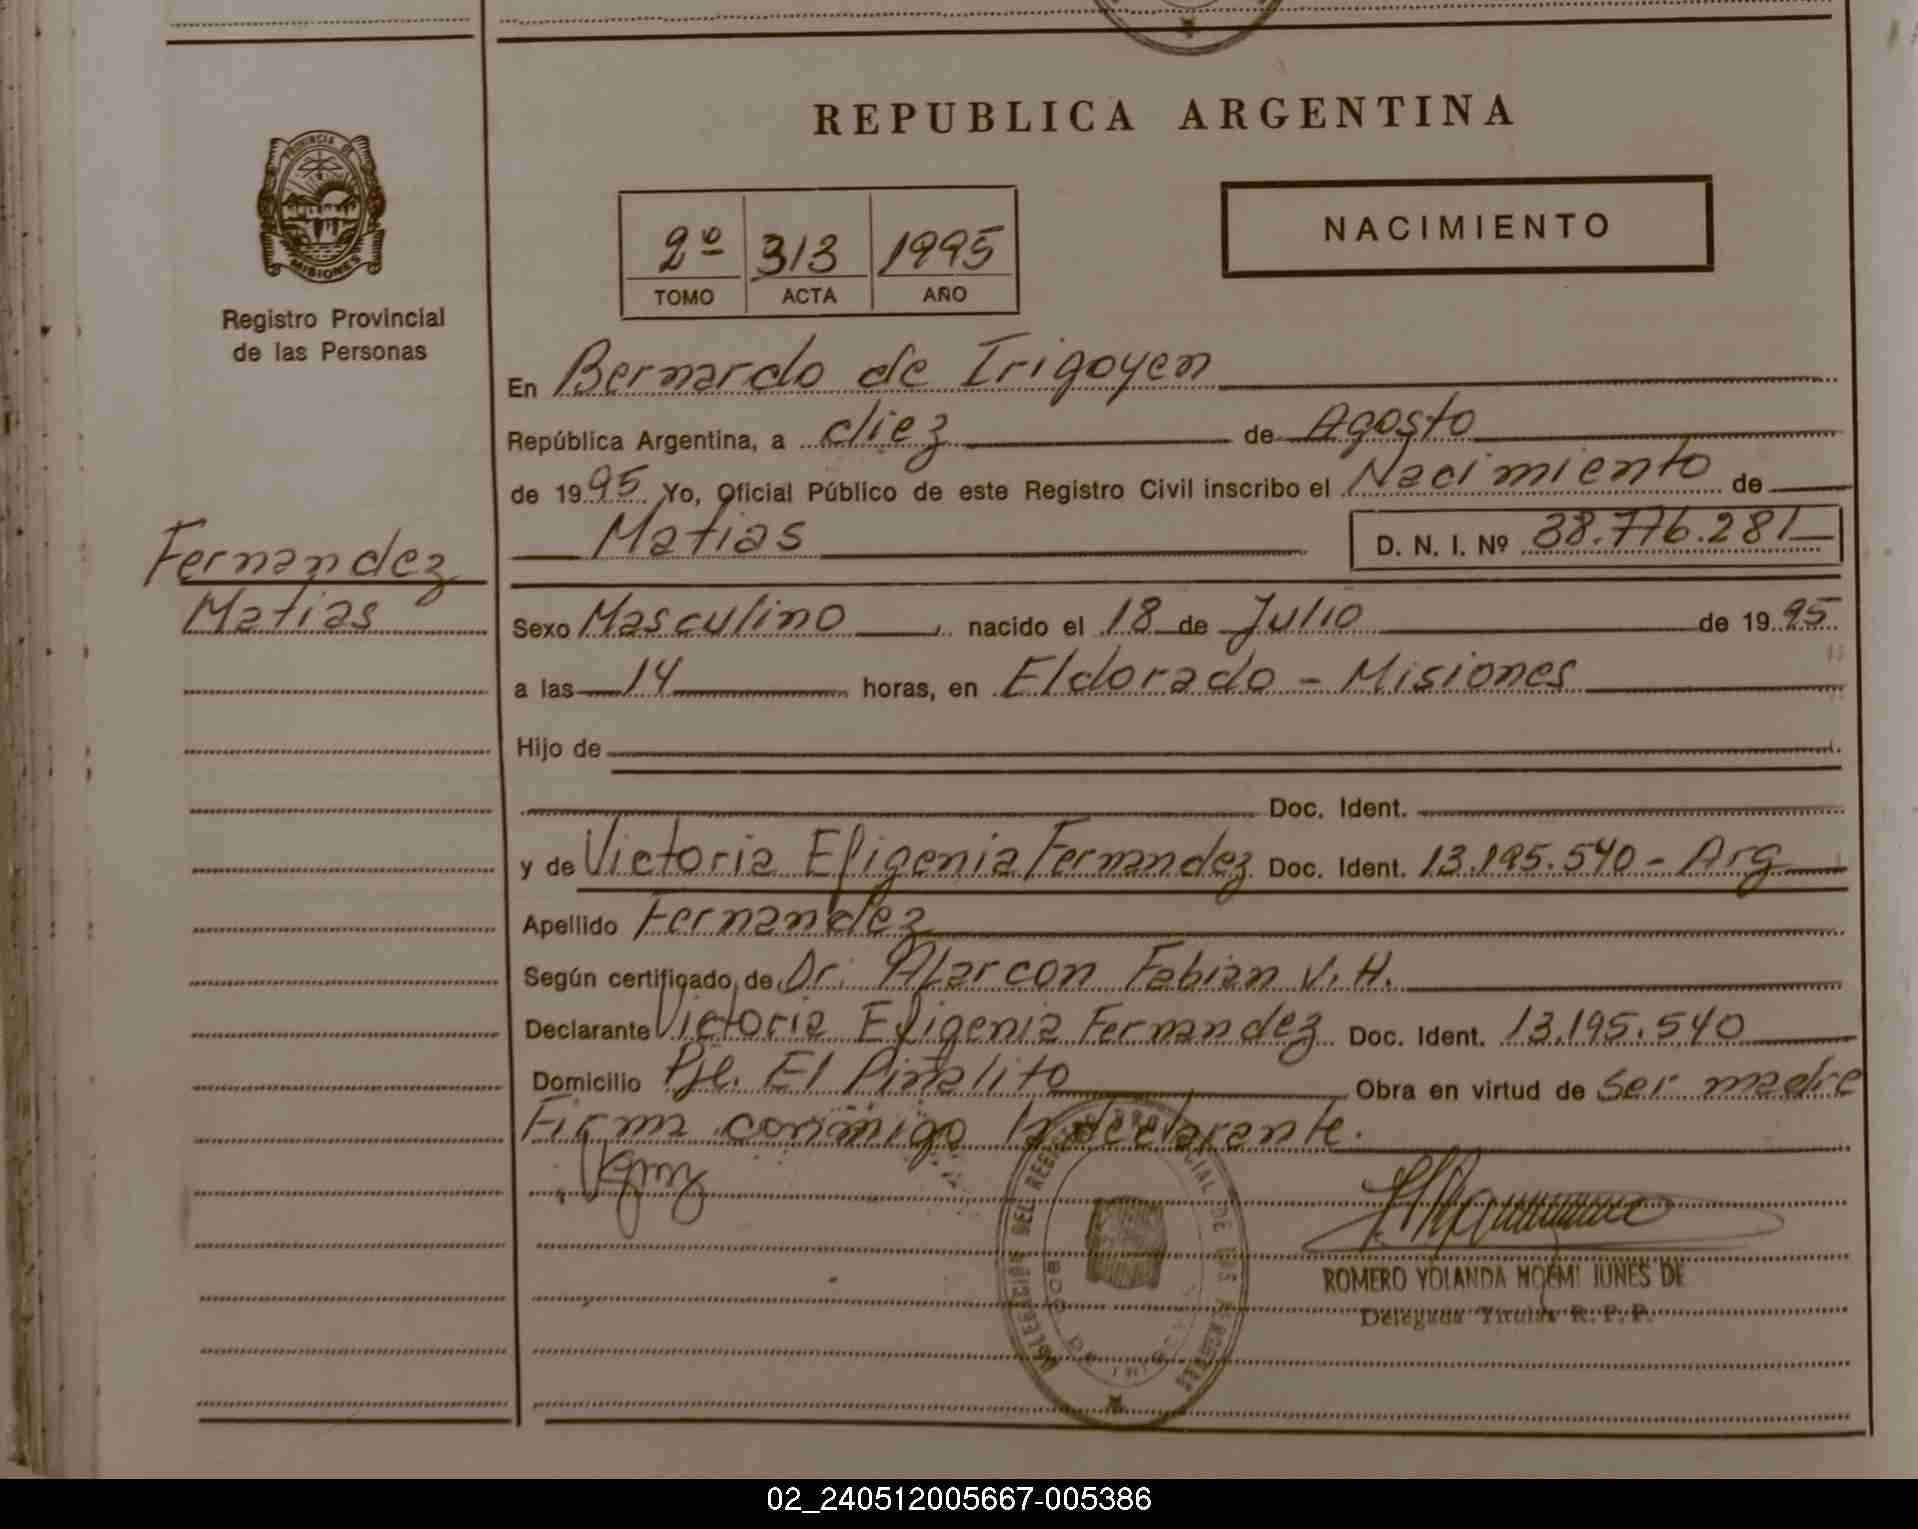 REPUBLICA ARGENTINA
PROVINCIA DE
MISIONES
Registro Provincial
de las Personas
2º 313 1995
TOMO ACTA AÑO
NACIMIENTO
En Bernardo de Irigoyen
República Argentina, a diez de Agosto
de 1995 Yo, Oficial Público de este Registro Civil inscribo el Nacimiento de
Matias D. N. I. Nº 38.776.281
Fernandez
Matias
Sexo Masculino nacido el 18 de Julio de 1995
a las 14 horas, en Eldorado - Misiones
Hijo de
Doc. Ident.
y de Victoria Efigenia Fernandez Doc. Ident. 13.195.540 - Arg
Apellido Fernandez
Según certificado de Dr. Alarcon Fabian V. H.
Declarante Victoria Efigenia Fernandez Doc. Ident. 13.195.540
Domicilio Pje. El Piñalito Obra en virtud de Ser madre
Firma conmigo la declarante.
ROMERO YOLANDA NOEMI JUNES DE
Delegada Titular R. P. P.
02_240512005667-005386